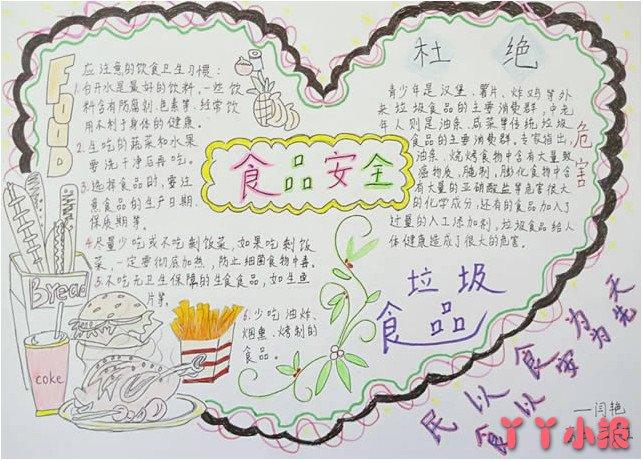 FOOD
应注意的饮食卫生习惯：
1.白开水是最好的饮料，一些饮
料含有防腐剂、色素等，经常饮
用不利于身体的健康。
2.生吃的蔬菜和水果
要洗干净后再吃。
3.选择食品时，要注
意食品的生产日期、
保质期等。
4.尽量少吃或不吃剩饭菜，如果吃剩饭
菜，一定要彻底加热，防止细菌食物中毒。
5.不吃无卫生保障的生食食品，如生鱼
片等。
6.少吃油炸、
烟熏、烤制的
食品。
Bread
coke
食品安全
杜绝
青少年是汉堡、薯片、炸鸡等外
来垃圾食品的主要消费群，中老
年人则是油条、咸菜等传统垃圾
食品的主要消费群。专家指出，
油条、烧烤食物中含有大量致
癌物质，腌制、膨化食物中含
有大量的亚硝酸盐等危害很大
的化学成分，还有的食品加入了
过量的人工添加剂，垃圾食品给人
体健康造成了很大的危害。
危害
垃圾
食品
民以食为天
食以安为先
——闫艳
丫丫小报